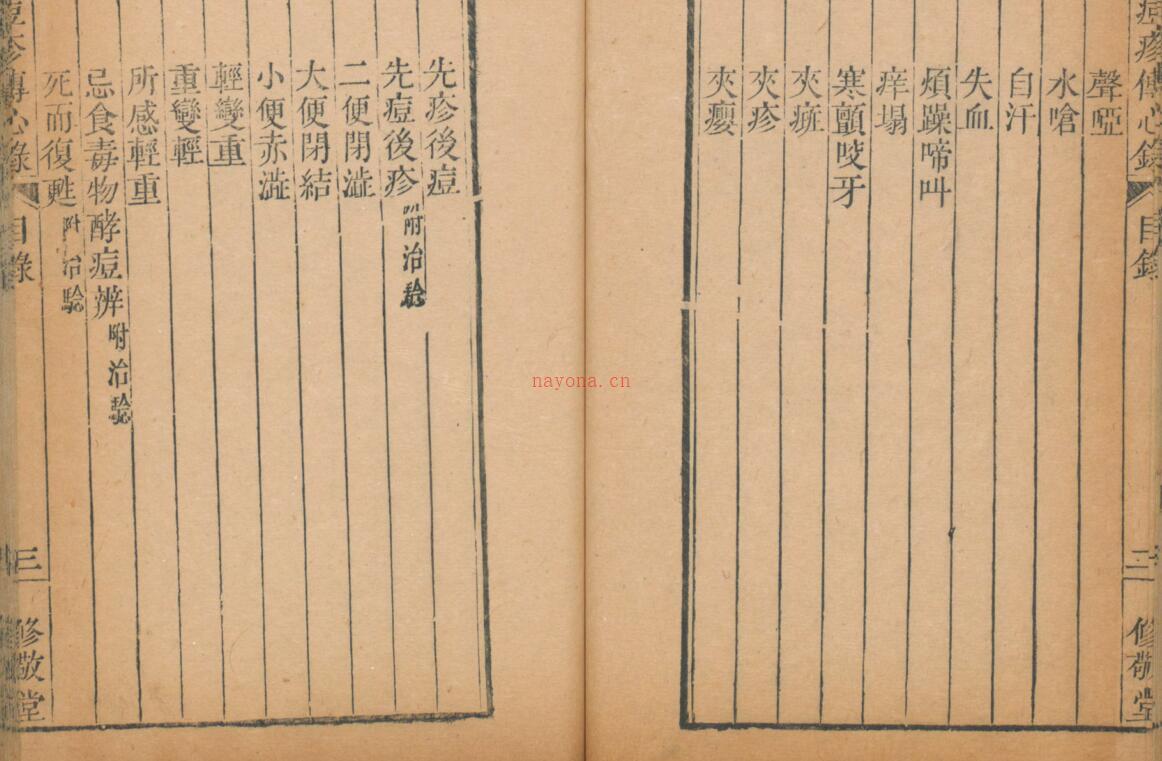 痘疹傳心錄
目錄
二
修敬堂
聲啞
水嗆
自汗
失血
煩躁啼叫
痒塌
寒顫咬牙
夾疿
夾疹
夾癭
先疹後痘
先痘後疹 附治驗
二便閉澁
大便閉結
小便赤澁
輕變重
重變輕
所感輕重
忌食毒物酵痘辨 附治驗
死而復甦 附治驗
痘疹傳心錄
目錄
三
修敬堂
nayona.cn